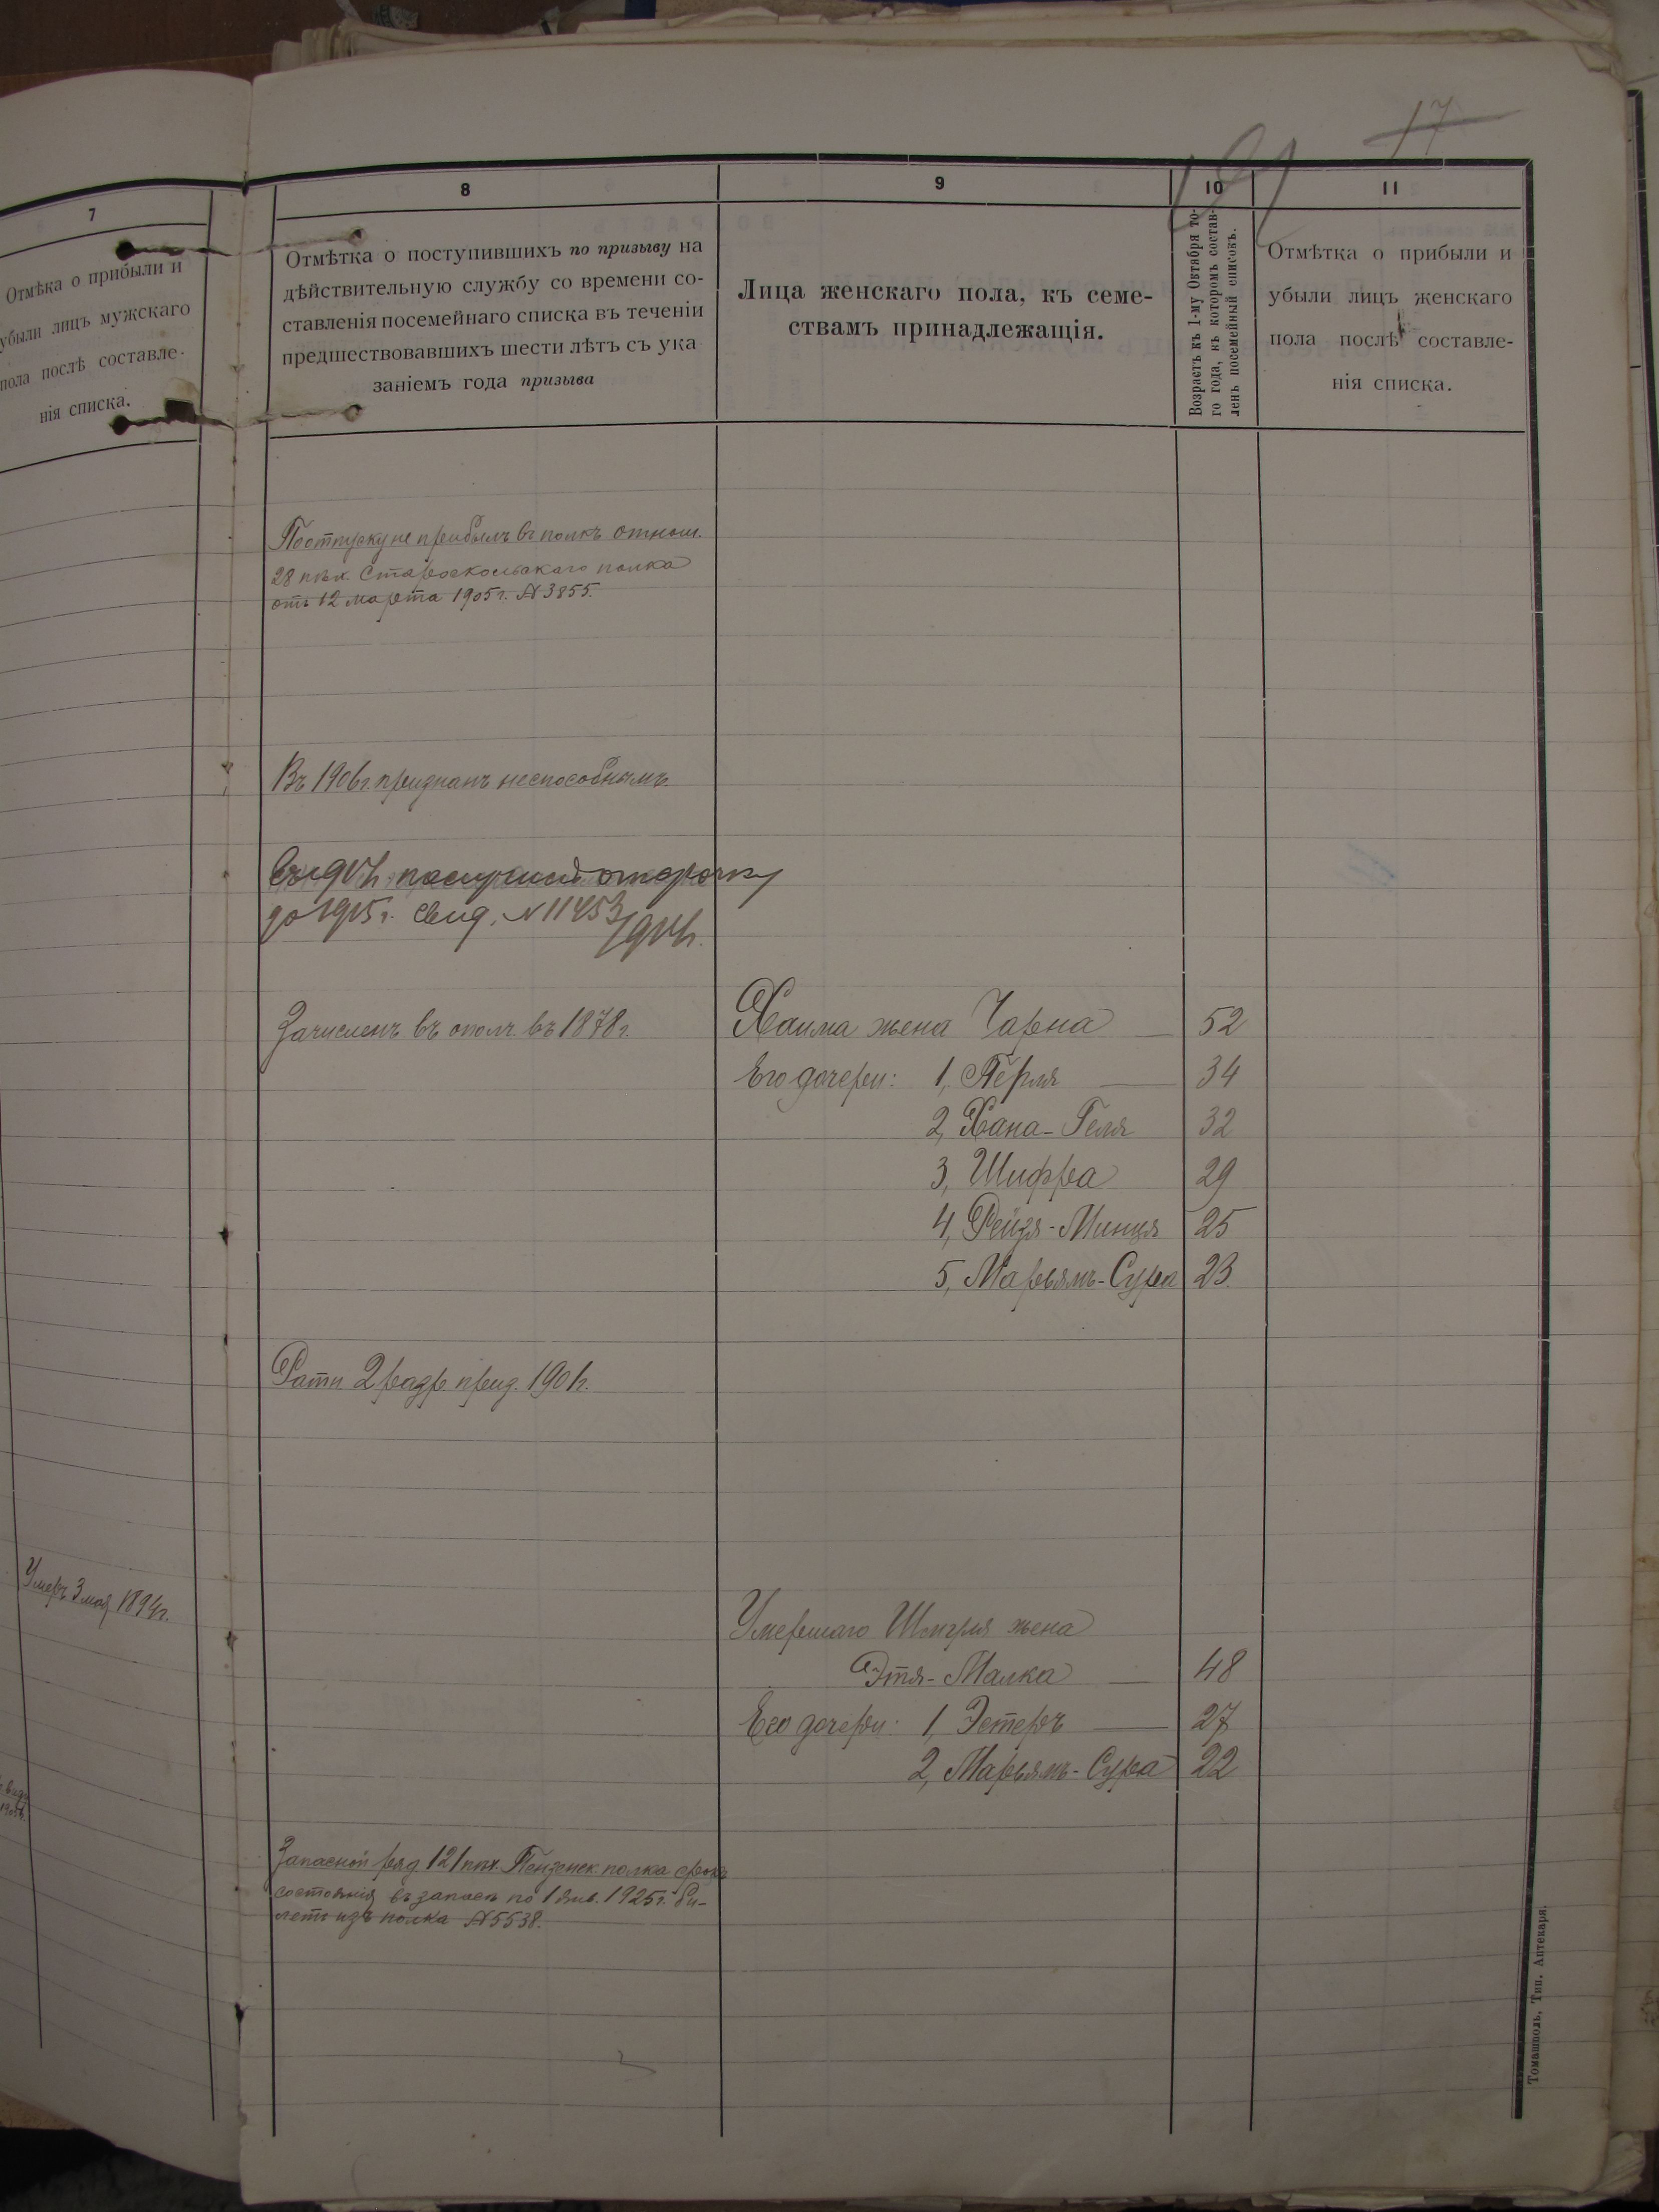 17
191
7
Отмѣка о прибыли и
убыли лицъ мужскаго
пола послѣ составле-
нія списка.
Умеръ 3 мая 1894г.
8
Отмѣтка о поступившихъ по призыву на
дѣйствительную службу со времени со-
ставленія посемейнаго списка въ теченіи
предшествовавшихъ шести лѣтъ съ ука
заніемъ года призыва
По отпуску не прибылъ въ полкъ отнош.
28 пѣх. Староскольскаго полка
отъ 12 марта 1905 г. № 3855.
Въ 1906 г. признанъ неспособнымъ.
отсрочку
до 1915 г. свид. № 11453
Зачисленъ въ ополч. въ 1878 г.
Ратн 2 разр. приз. 1901г.
Запасной ряд. 121 пѣх. Пензенск. полка срокъ
состоянія въ запасѣ по 1 янв. 1925 г. би-
летъ изъ полка № 5538.
9
Лица женскаго пола, къ семе-
ствамъ принадлежащія.
10
Возрастъ къ 1-му Октября то-
го года, къ которомъ состав-
ленъ посемейный списокъ.
11
Отмѣтка о прибыли и
убыли лицъ женскаго
пола послѣ составле-
нія списка.
Хаима жена Чарна — 52
Его дочери: 1, Перля — 34
2, Хана-Геля 32
3, Шифра 29
4, Рейзя-Минця 25
5, Марьямъ-Сура 23.
Умершаго Шмуля жена
Этя-Малка — 48
Его дочери: 1, Эстеръ — 27
2, Марьямъ-Сура 22
Томашполь, Тип. Аптекаря.